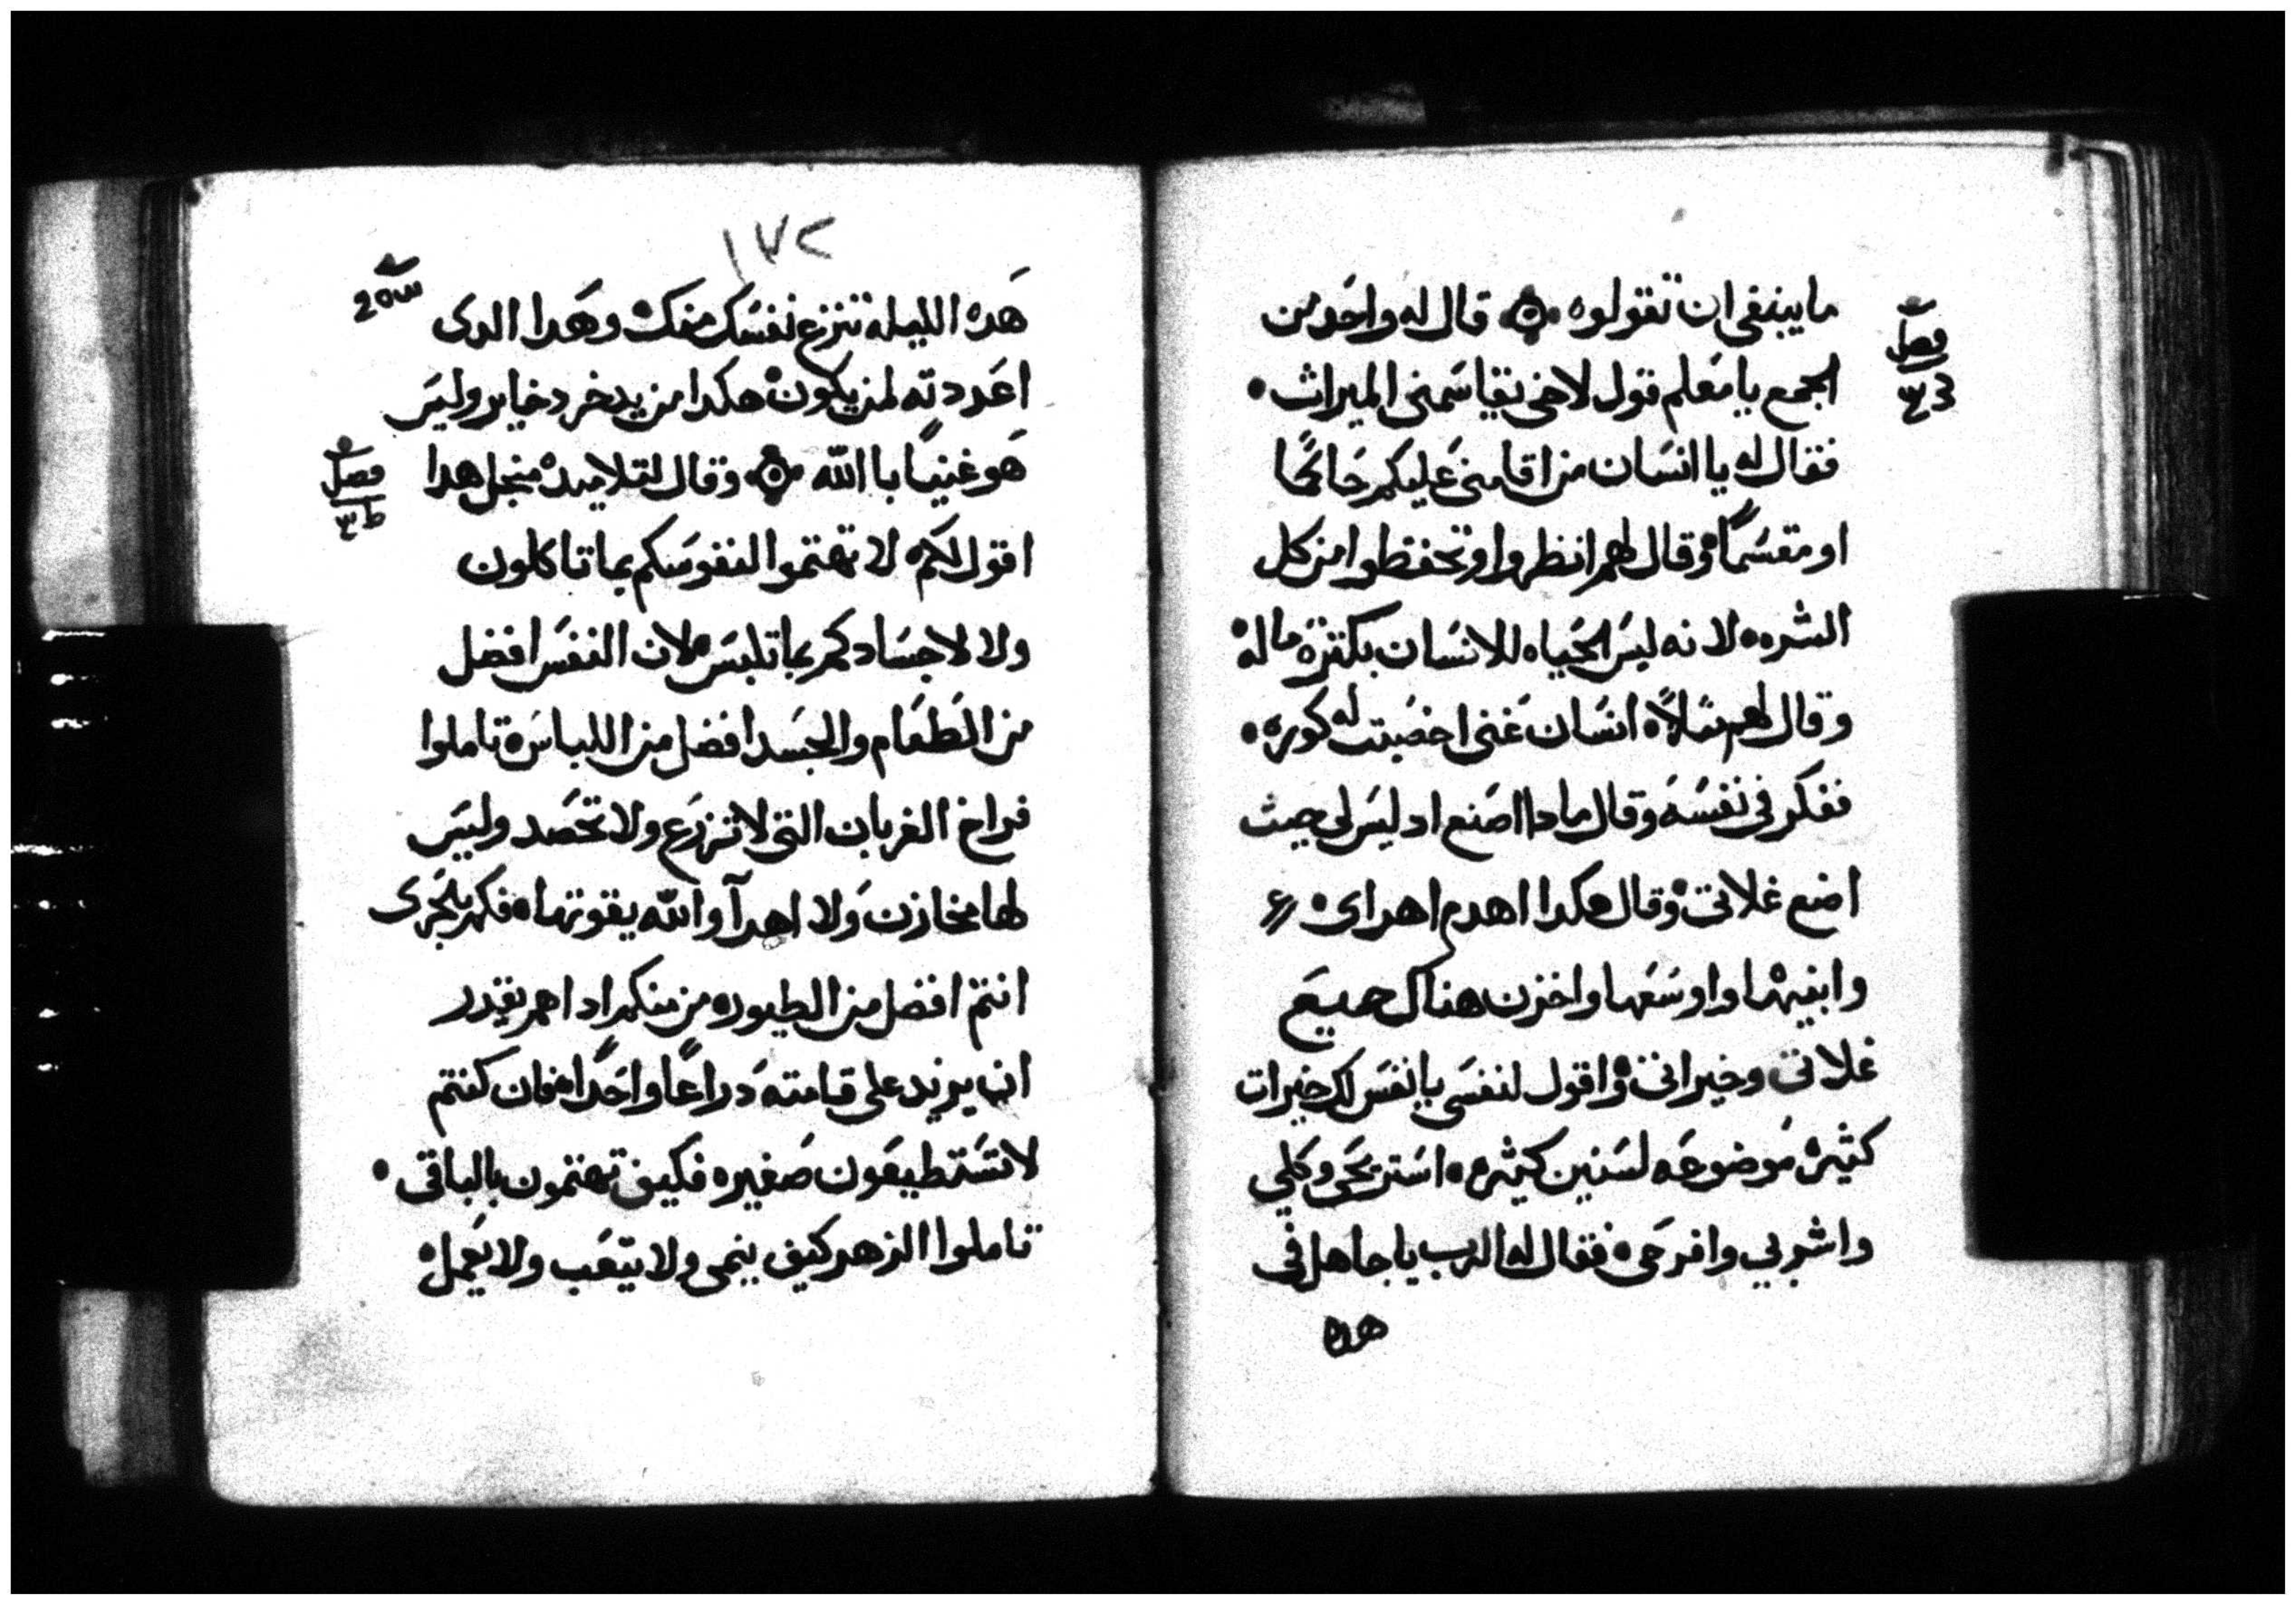 ما ينبغى ان تقولوه ۞ قال له واحد من
فصل
الجمع يا معلم قول لاخى يقاسمنى الميراث •
فقال له يا انسان من اقامنى عليكم حاكمًا
او مقسمًا وقال لهم انظروا وتحفظوا من كل
الشره لانه ليس الحياه للانسان بكتره ماله
وقال لهم مثلاً انسان غنى اخصبت له كوره •
ففكر فى نفسه وقال مادا اصنع اد ليس لى حيث
اضع غلاتى وقال هكدا اهدم اهراى
وابنيها واوسعها واخزن هناك جميع
غلاتى وخيراتى واقول لنفسى يا نفس لك خيرات
كثيره موضوعه لسنين كثيره استريحى وكلي
واشربي وافرحى فقال له الرب يا جاهل فى
هده
١٧٢
هده الليله تنزع نفسك منك وهدا الدى
اعددته لمن يكون هكدا من يدخر دخاير وليس
هو غنيًا با الله ۞ وقال لتلاميده منجل هدا
فصل
اقول لكم لا تهتموا لنفوسكم بما تاكلون
ولا لاجسادكم بما تلبس لان النفس افضل
من الطعام والجسد افضل من اللباس تاملوا
فراخ الغربان التى لا تزرع ولا تحصد وليس
لها مخازن ولا اهرآ والله يقوتها فكم بالحرى
انتم افضل من الطيور من منكم ادا اهم يقدر
ان يزيد على قامته دراعًا واحدًا فان كنتم
لا تستطيعون صغيره فكيف تهتمون بالباقى •
تاملوا الزهر كيف ينمى ولا يتعب ولا يعمل